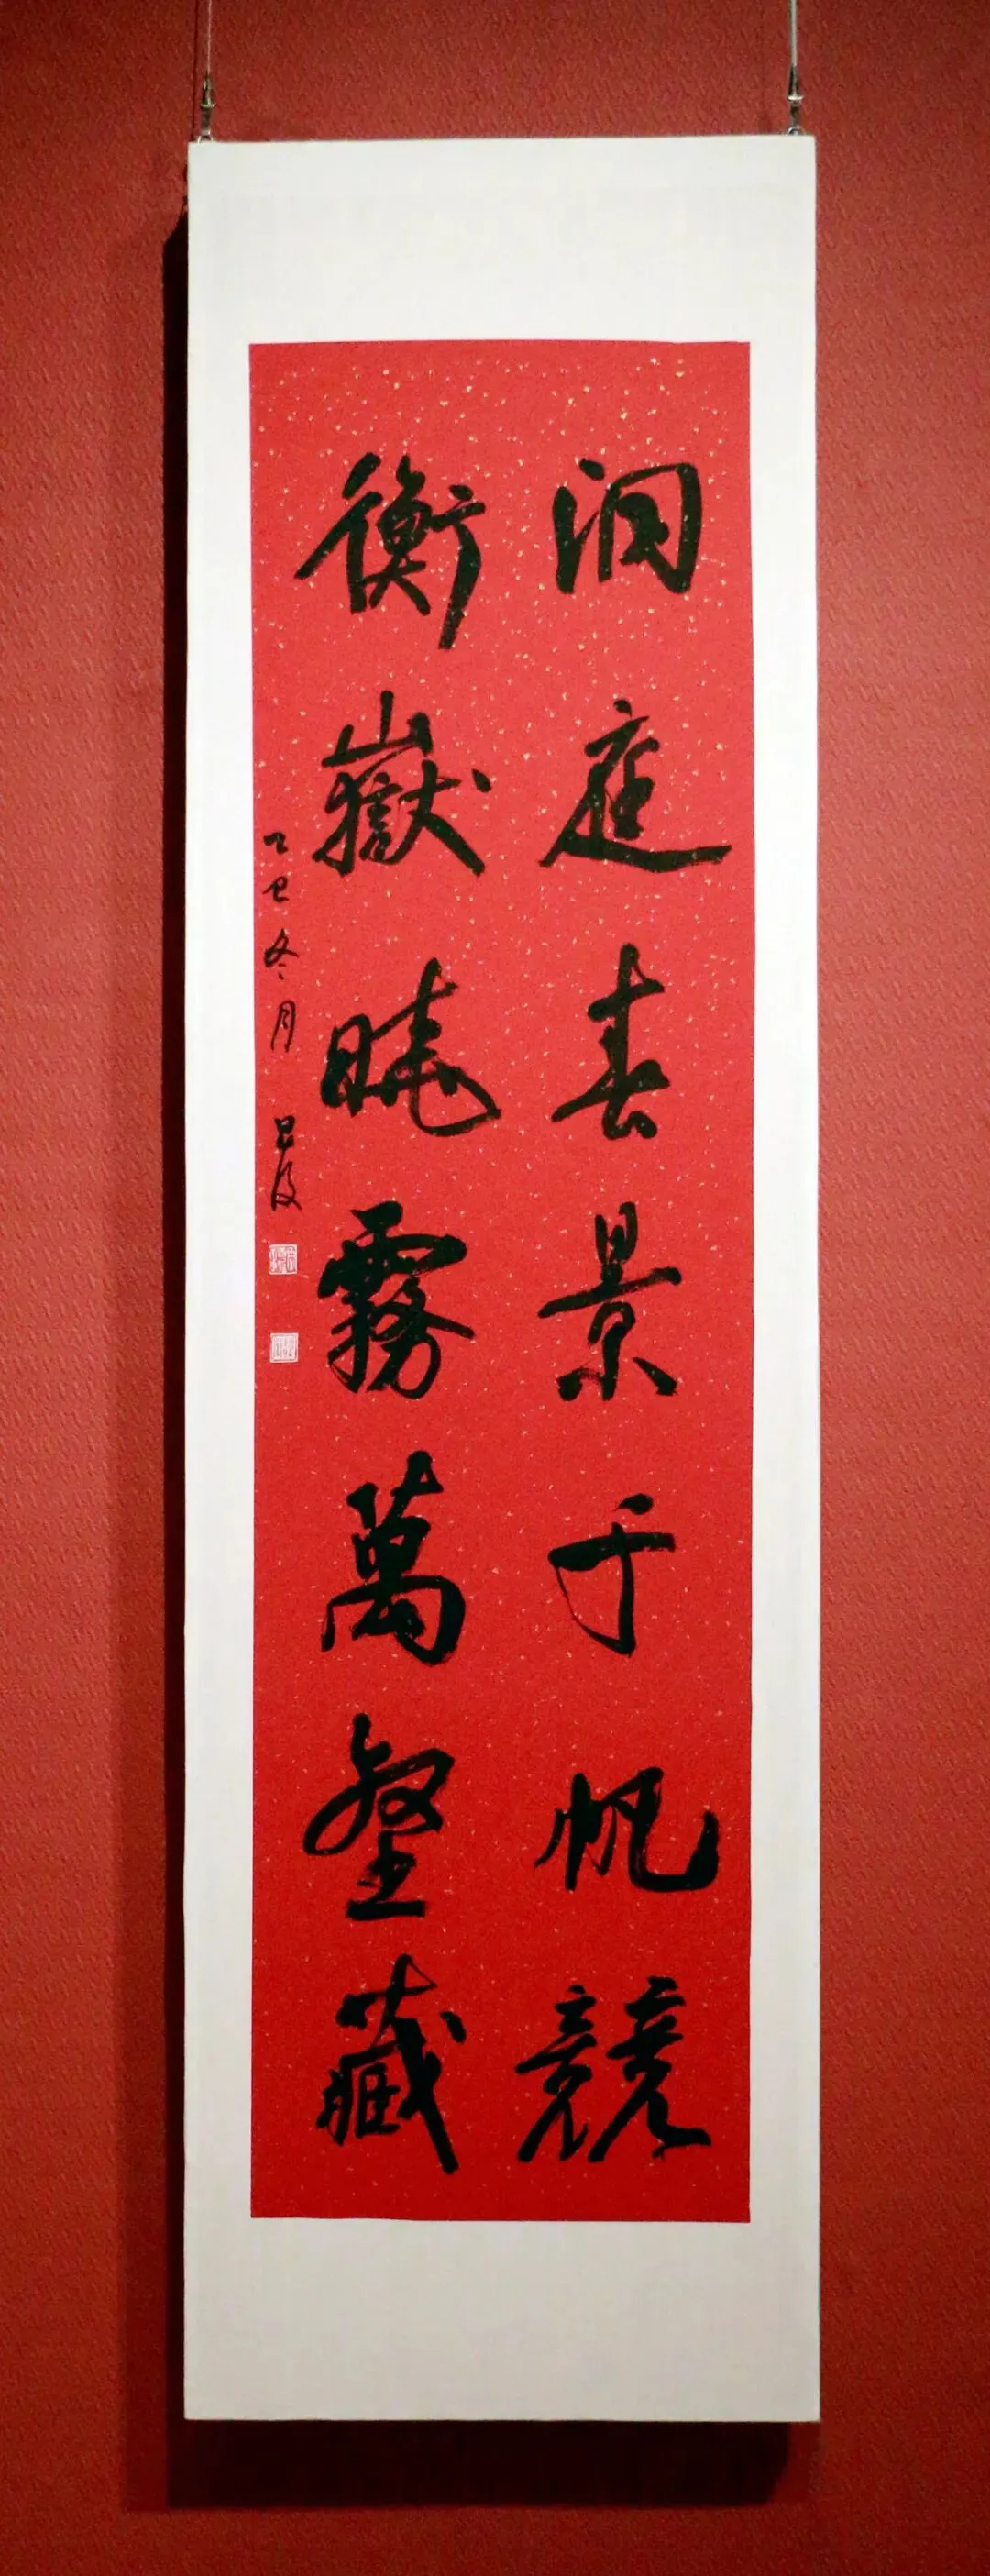 洞庭春景千帆競
衡嶽曉霧萬壑藏
乙巳冬月